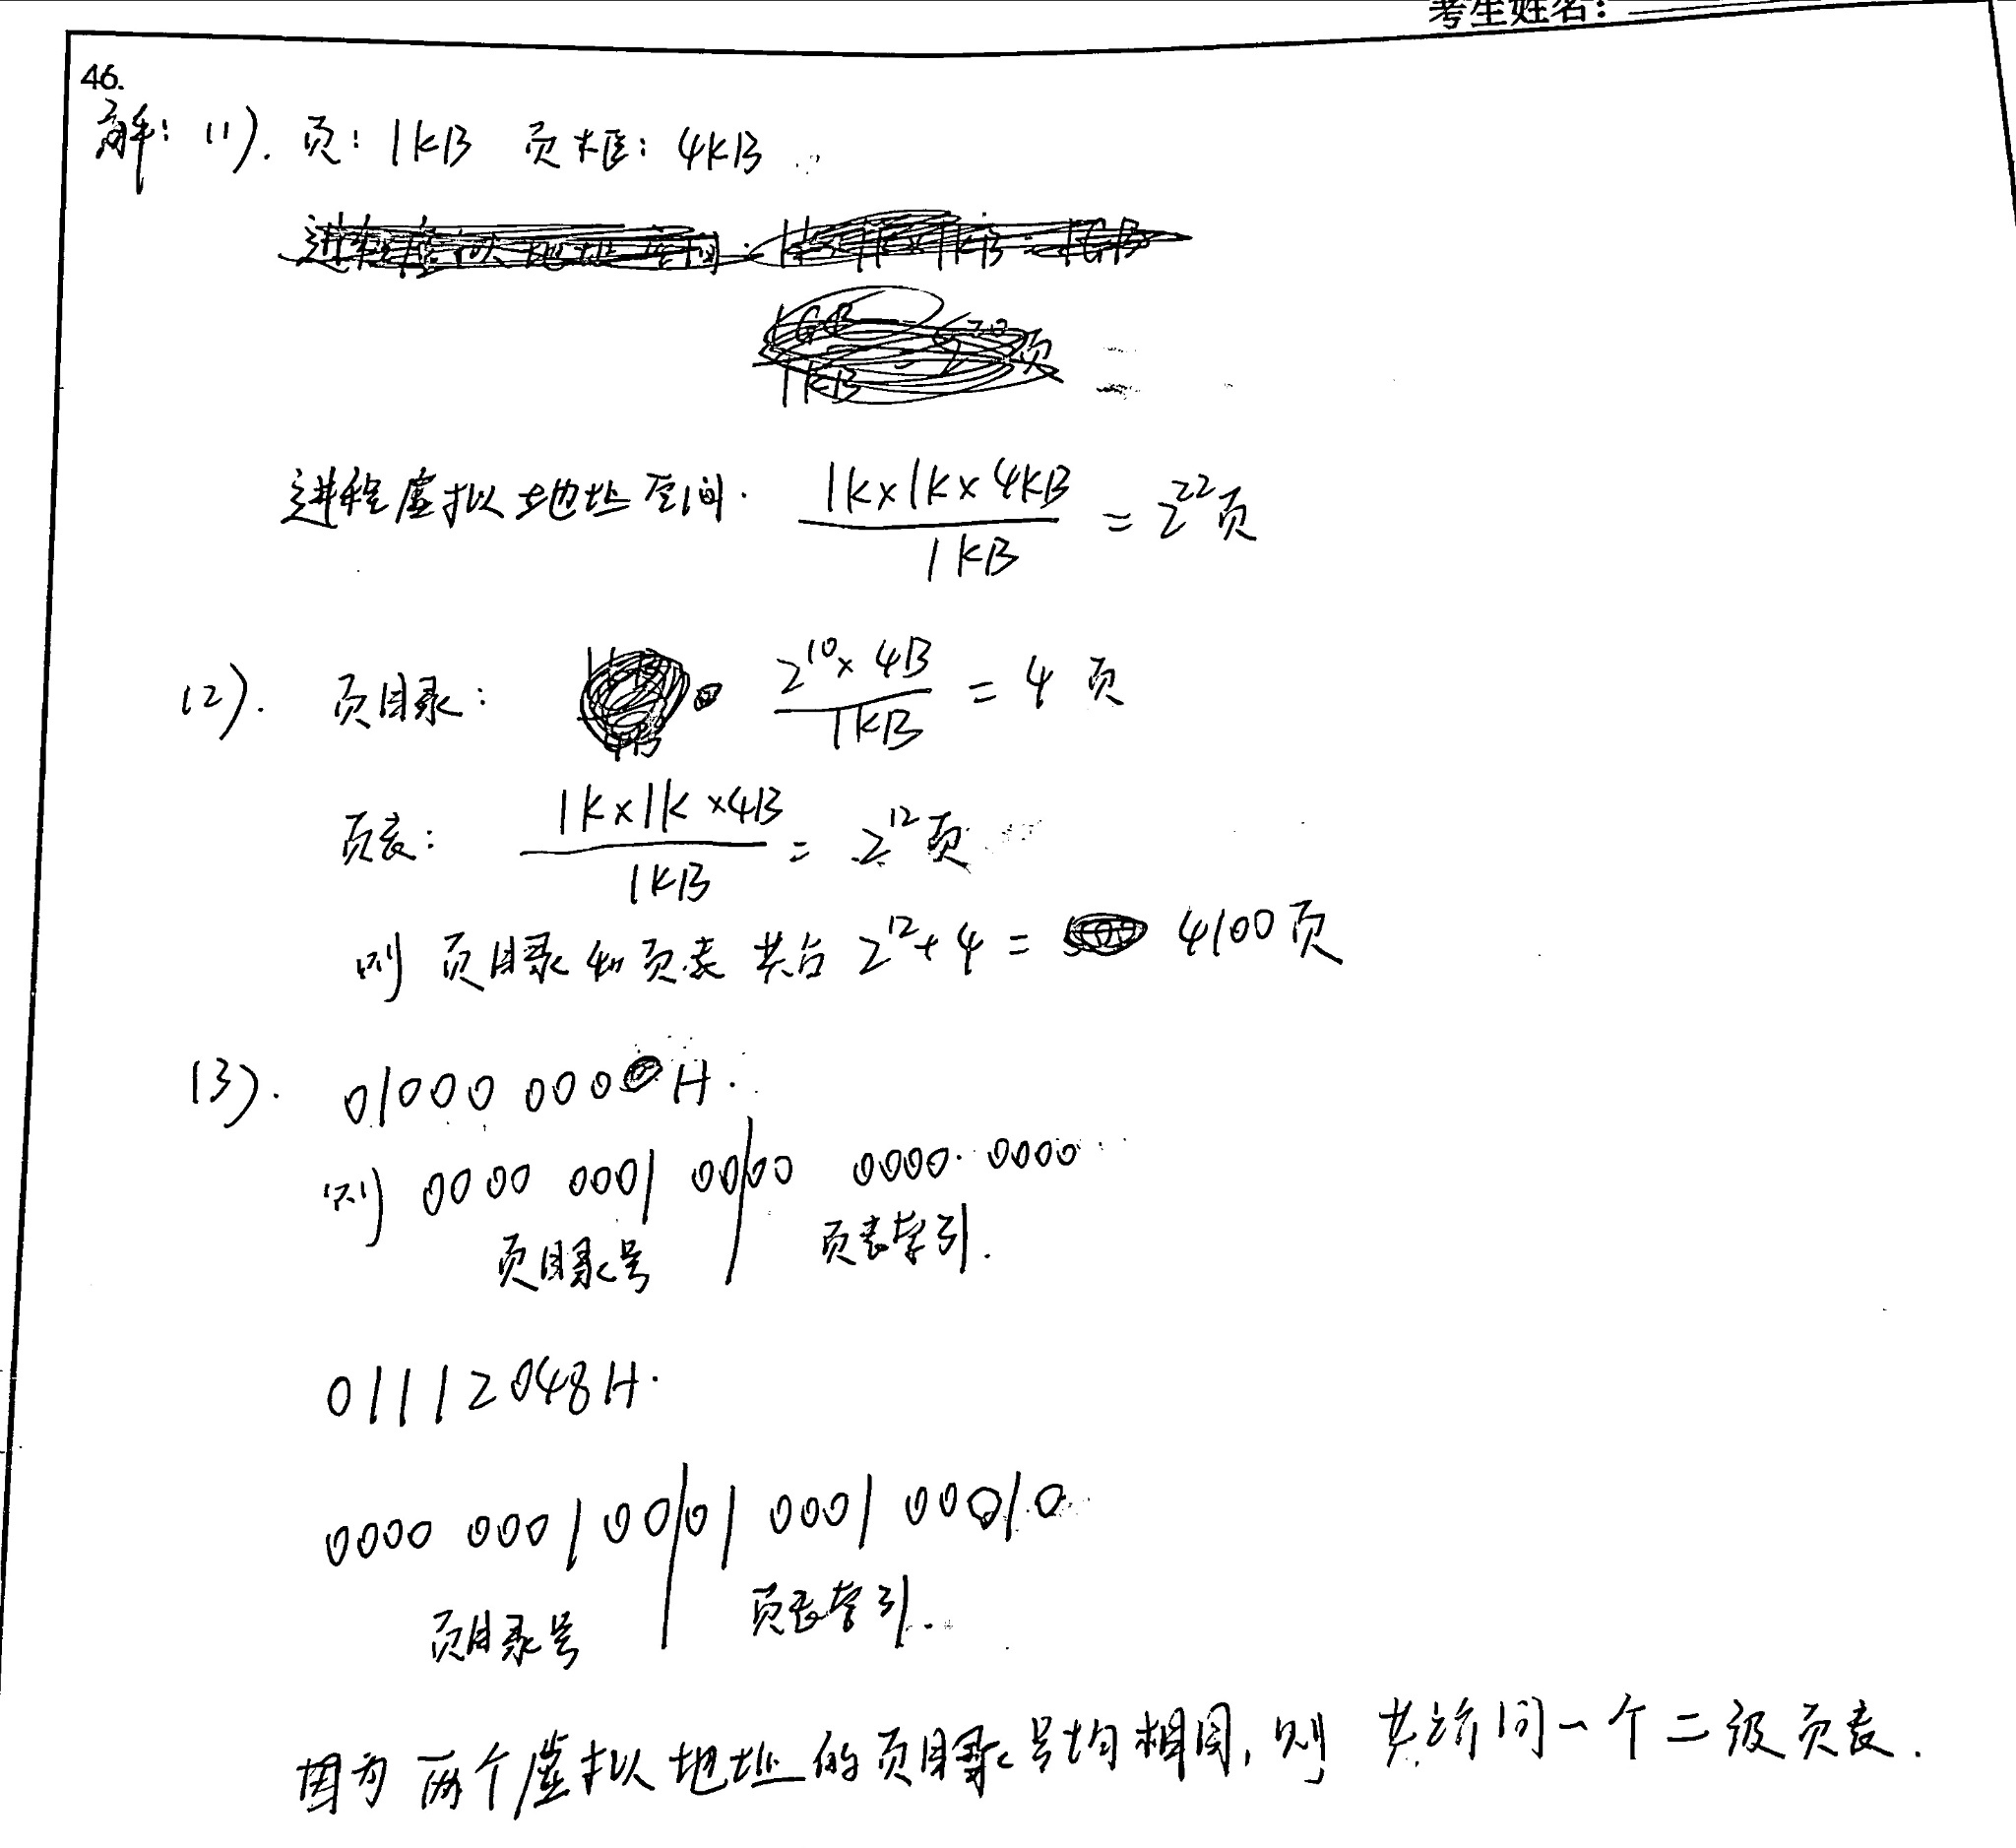 考生姓名:
46.
解: (1). 页: 1KB 页框: 4KB
进程虚拟地址空间. 1K×1K×4KB / 1KB = 2^22页
(2). 页目录: 2^10×4B / 1KB = 4 页
页表: 1K×1K×4B / 1KB = 2^12页
则 页目录和页表 共占 2^12+4 = 4100页
(3). 01000 000 H.
则 0000 0001 00|00 0000 0000
页目录号 页表索引.
01112048H.
0000 0001 00|01 0001 00010
页目录号 页表索引.
因为两个虚拟地址的页目录号均相同, 则 共访问一个二级页表.